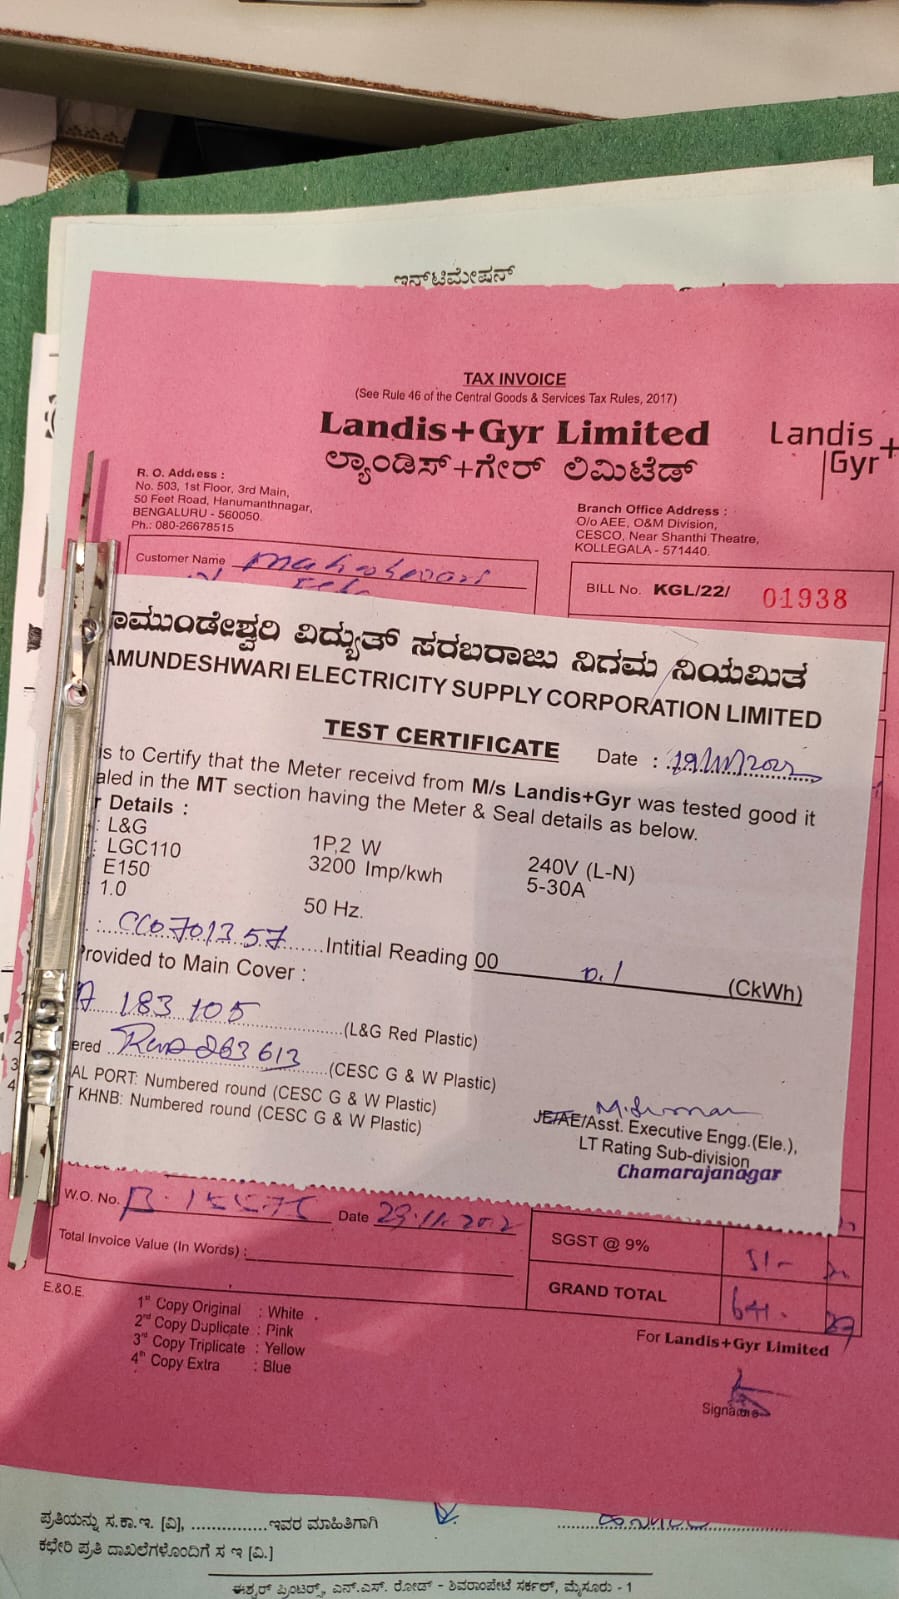 ಇನ್‌ಟಿಮೇಷನ್
TAX INVOICE
(See Rule 46 of the Central Goods & Services Tax Rules, 2017)
Landis+Gyr Limited
ಲ್ಯಾಂಡಿಸ್+ಗೇರ್ ಲಿಮಿಟೆಡ್
Landis+
Gyr
R. O. Address :
No. 503, 1st Floor, 3rd Main,
50 Feet Road, Hanumanthnagar,
BENGALURU - 560050.
Ph.: 080-26678515
Branch Office Address :
O/o AEE, O&M Division,
CESCO, Near Shanthi Theatre,
KOLLEGALA - 571440.
Customer Name
BILL No. KGL/22/ 01938
ಾಮುಂಡೇಶ್ವರಿ ವಿದ್ಯುತ್ ಸರಬರಾಜು ನಿಗಮ ನಿಯಮಿತ
AMUNDESHWARI ELECTRICITY SUPPLY CORPORATION LIMITED
TEST CERTIFICATE
Date :
is to Certify that the Meter receivd from M/s Landis+Gyr was tested good it
aled in the MT section having the Meter & Seal details as below.
r Details :
: L&G 1P,2 W 240V (L-N)
: LGC110 3200 Imp/kwh 5-30A
E150
1.0 50 Hz.
: CC0701357 Intitial Reading 00 0.1 (CkWh)
Provided to Main Cover :
A 183105 (L&G Red Plastic)
ered 263613 (CESC G & W Plastic)
AL PORT: Numbered round (CESC G & W Plastic)
T KHNB: Numbered round (CESC G & W Plastic)
JE/AE/Asst. Executive Engg.(Ele.),
LT Rating Sub-division
Chamarajanagar
W.O. No. Date
Total Invoice Value (In Words) :
SGST @ 9%
GRAND TOTAL 641
E.&O.E.
1st Copy Original : White
2nd Copy Duplicate : Pink
3rd Copy Triplicate : Yellow
4th Copy Extra : Blue
For Landis+Gyr Limited
Signature
ಪ್ರತಿಯನ್ನು ಸ.ಕಾ.ಇ. [ವಿ], ...............ಇವರ ಮಾಹಿತಿಗಾಗಿ
ಕಛೇರಿ ಪ್ರತಿ ದಾಖಲೆಗಳೊಂದಿಗೆ ಸ ಇ [ವಿ.]
ಈಶ್ವರ್ ಪ್ರಿಂಟರ್ಸ್, ಎನ್.ಎಸ್. ರೋಡ್ - ಶಿವರಾಂಪೇಟೆ ಸರ್ಕಲ್, ಮೈಸೂರು - 1